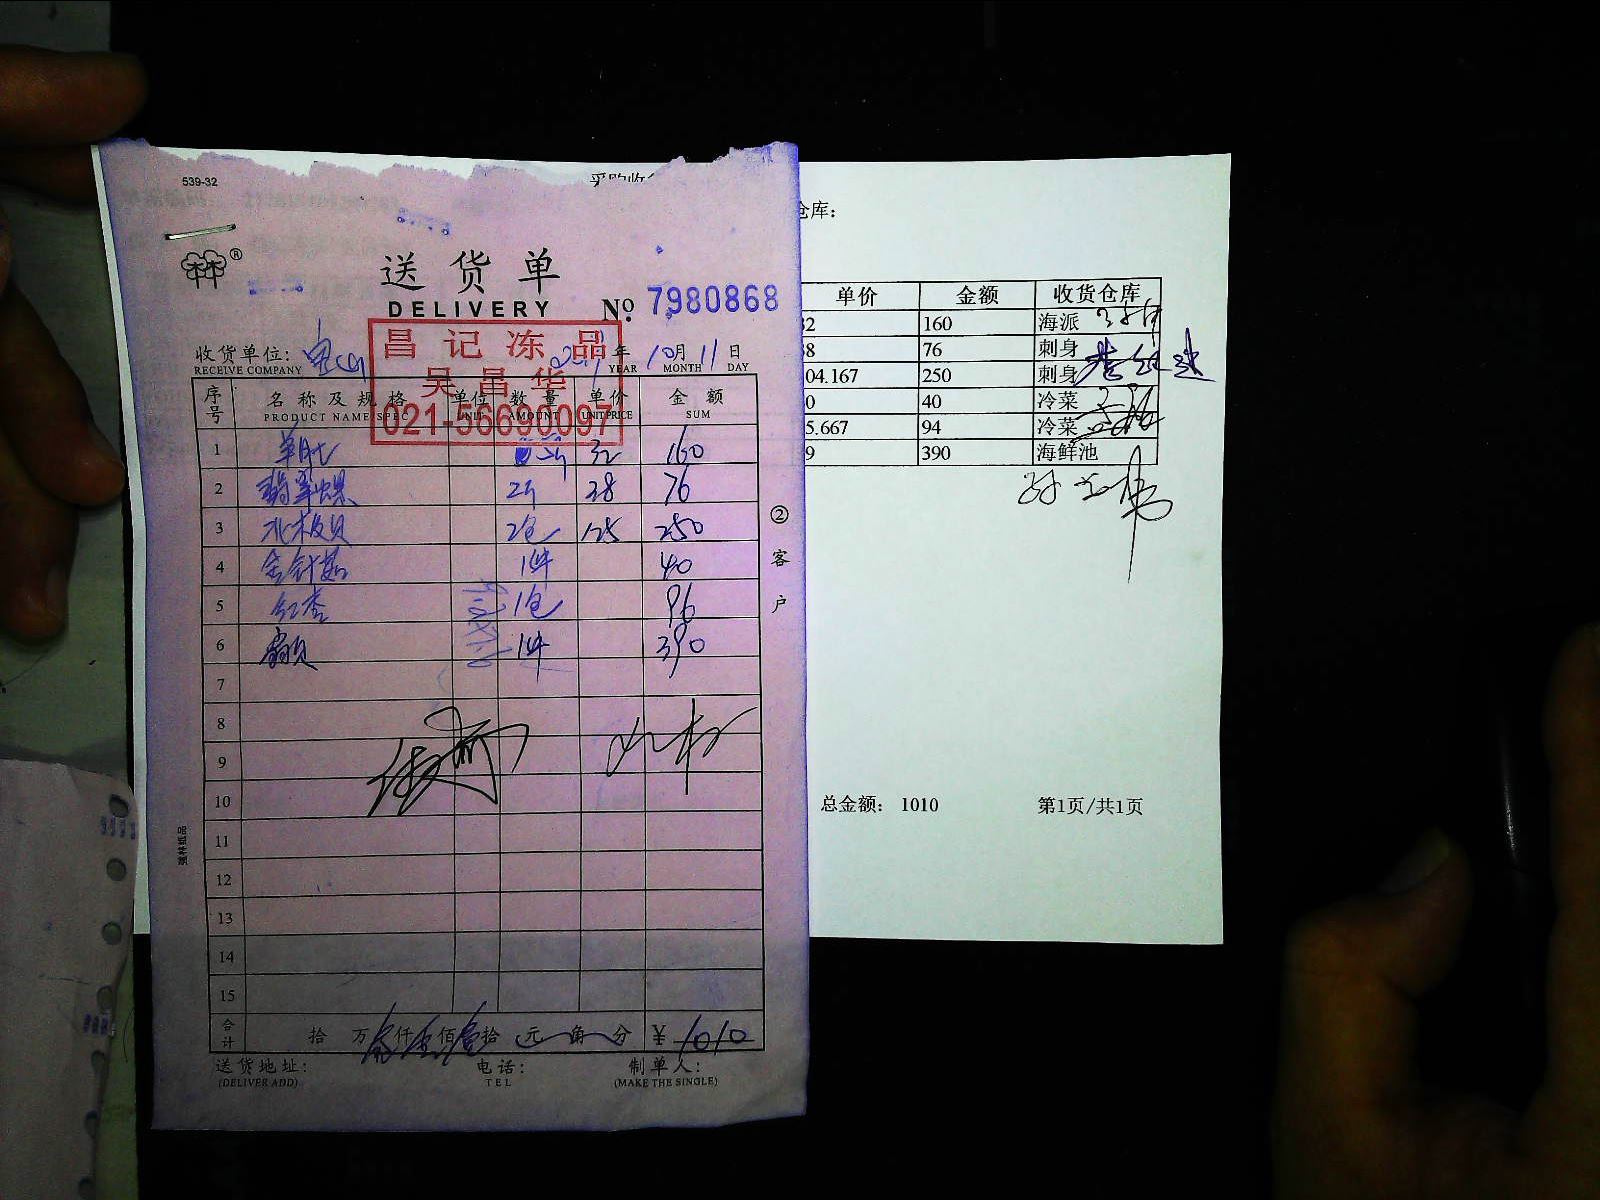 539-32
送货单
DELIVERY
No. 7980868
昌记冻品
吴昌华
021-56690097
收货单位:
RECEIVE COMPANY
年 10月 11日
YEAR MONTH DAY
序号 名称及规格 单位 数量 单价 金额
PRODUCT NAME/SPEC UNIT AMOUNT UNIT PRICE SUM
1 32 160
2 翡翠螺 2斤 38 76
3 北极贝 2包 125 250
4 金针菇 1件 40
5 1包 96
6 扇贝 1件 390
7
8
9
10
11
12
13
14
15
合计 拾 万 仟 佰 拾 元 角 分 ¥ 1010
送货地址: 电话: 制单人:
(DELIVER ADD) TEL (MAKE THE SINGLE)
②客户
强林纸品
仓库:
单价 金额 收货仓库
32 160 海派
8 76 刺身
04.167 250 刺身
0 40 冷菜
5.667 94 冷菜
9 390 海鲜池
总金额: 1010 第1页/共1页